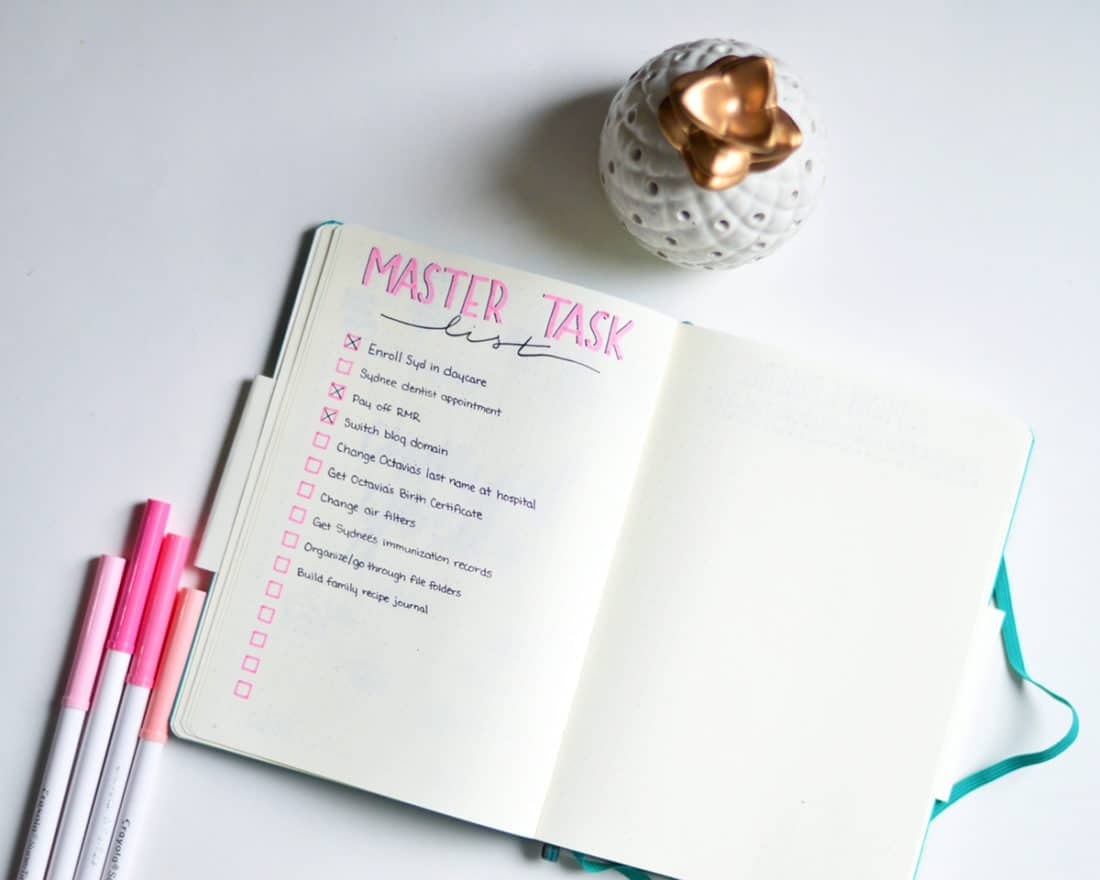 MASTER TASK
list
Enroll Syd in daycare
Sydnee dentist appointment
Pay off RMR
Switch blog domain
Change Octavia's last name at hospital
Get Octavia's Birth Certificate
Change air filters
Get Sydnee's immunization records
Organize/go through file folders
Build family recipe journal
Crayola
Crayola